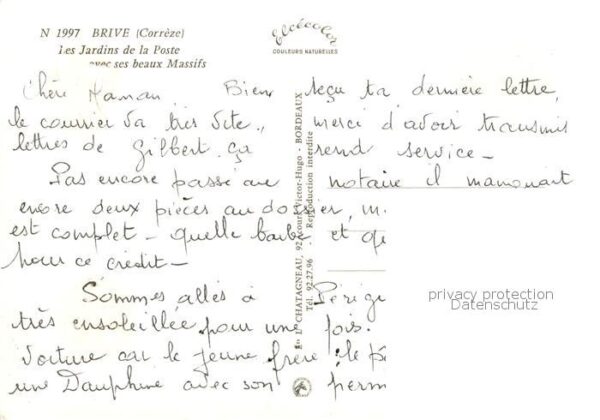 N 1997 BRIVE (Corrèze)
Les Jardins de la Poste
avec ses beaux Massifs
Elcécolor
COULEURS NATURELLES
Chère Maman, Bien reçu ta dernière lettre,
le courrier va très vite, merci d'avoir transmis
lettres de Gilbert ça rend service -
Pas encore passé au notaire il manquait
encore deux pièces au dossier, m.
est complet - quelle barbe et q
pour ce crédit -
Sommes allés à Périg
très ensoleillée pour une fois.
voiture car le jeune frère : le p
une Dauphine avec son perm
Éd. CHATAGNEAU, 92, cours Victor-Hugo - BORDEAUX
Tél. 92-27.96 - Reproduction interdite
privacy protection
Datenschutz